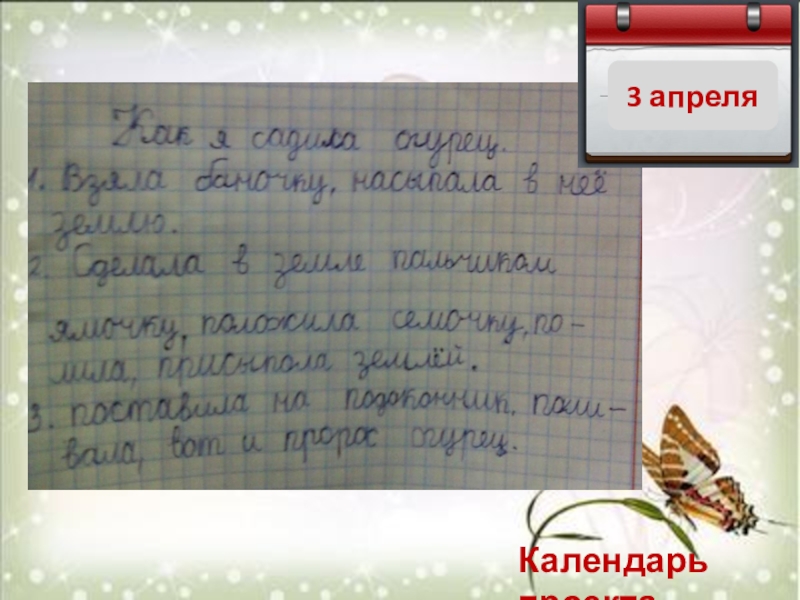 3 апреля
Как я садила огурец.
1. Взяла баночку, насыпала в неё
землю.
2. Сделала в земле пальчиком
ямочку, положила семочку, по-
лила, присыпола землёй.
3. поставила на подоконник, поли-
вала, вот и пророс огурец.
Календарь
проекта